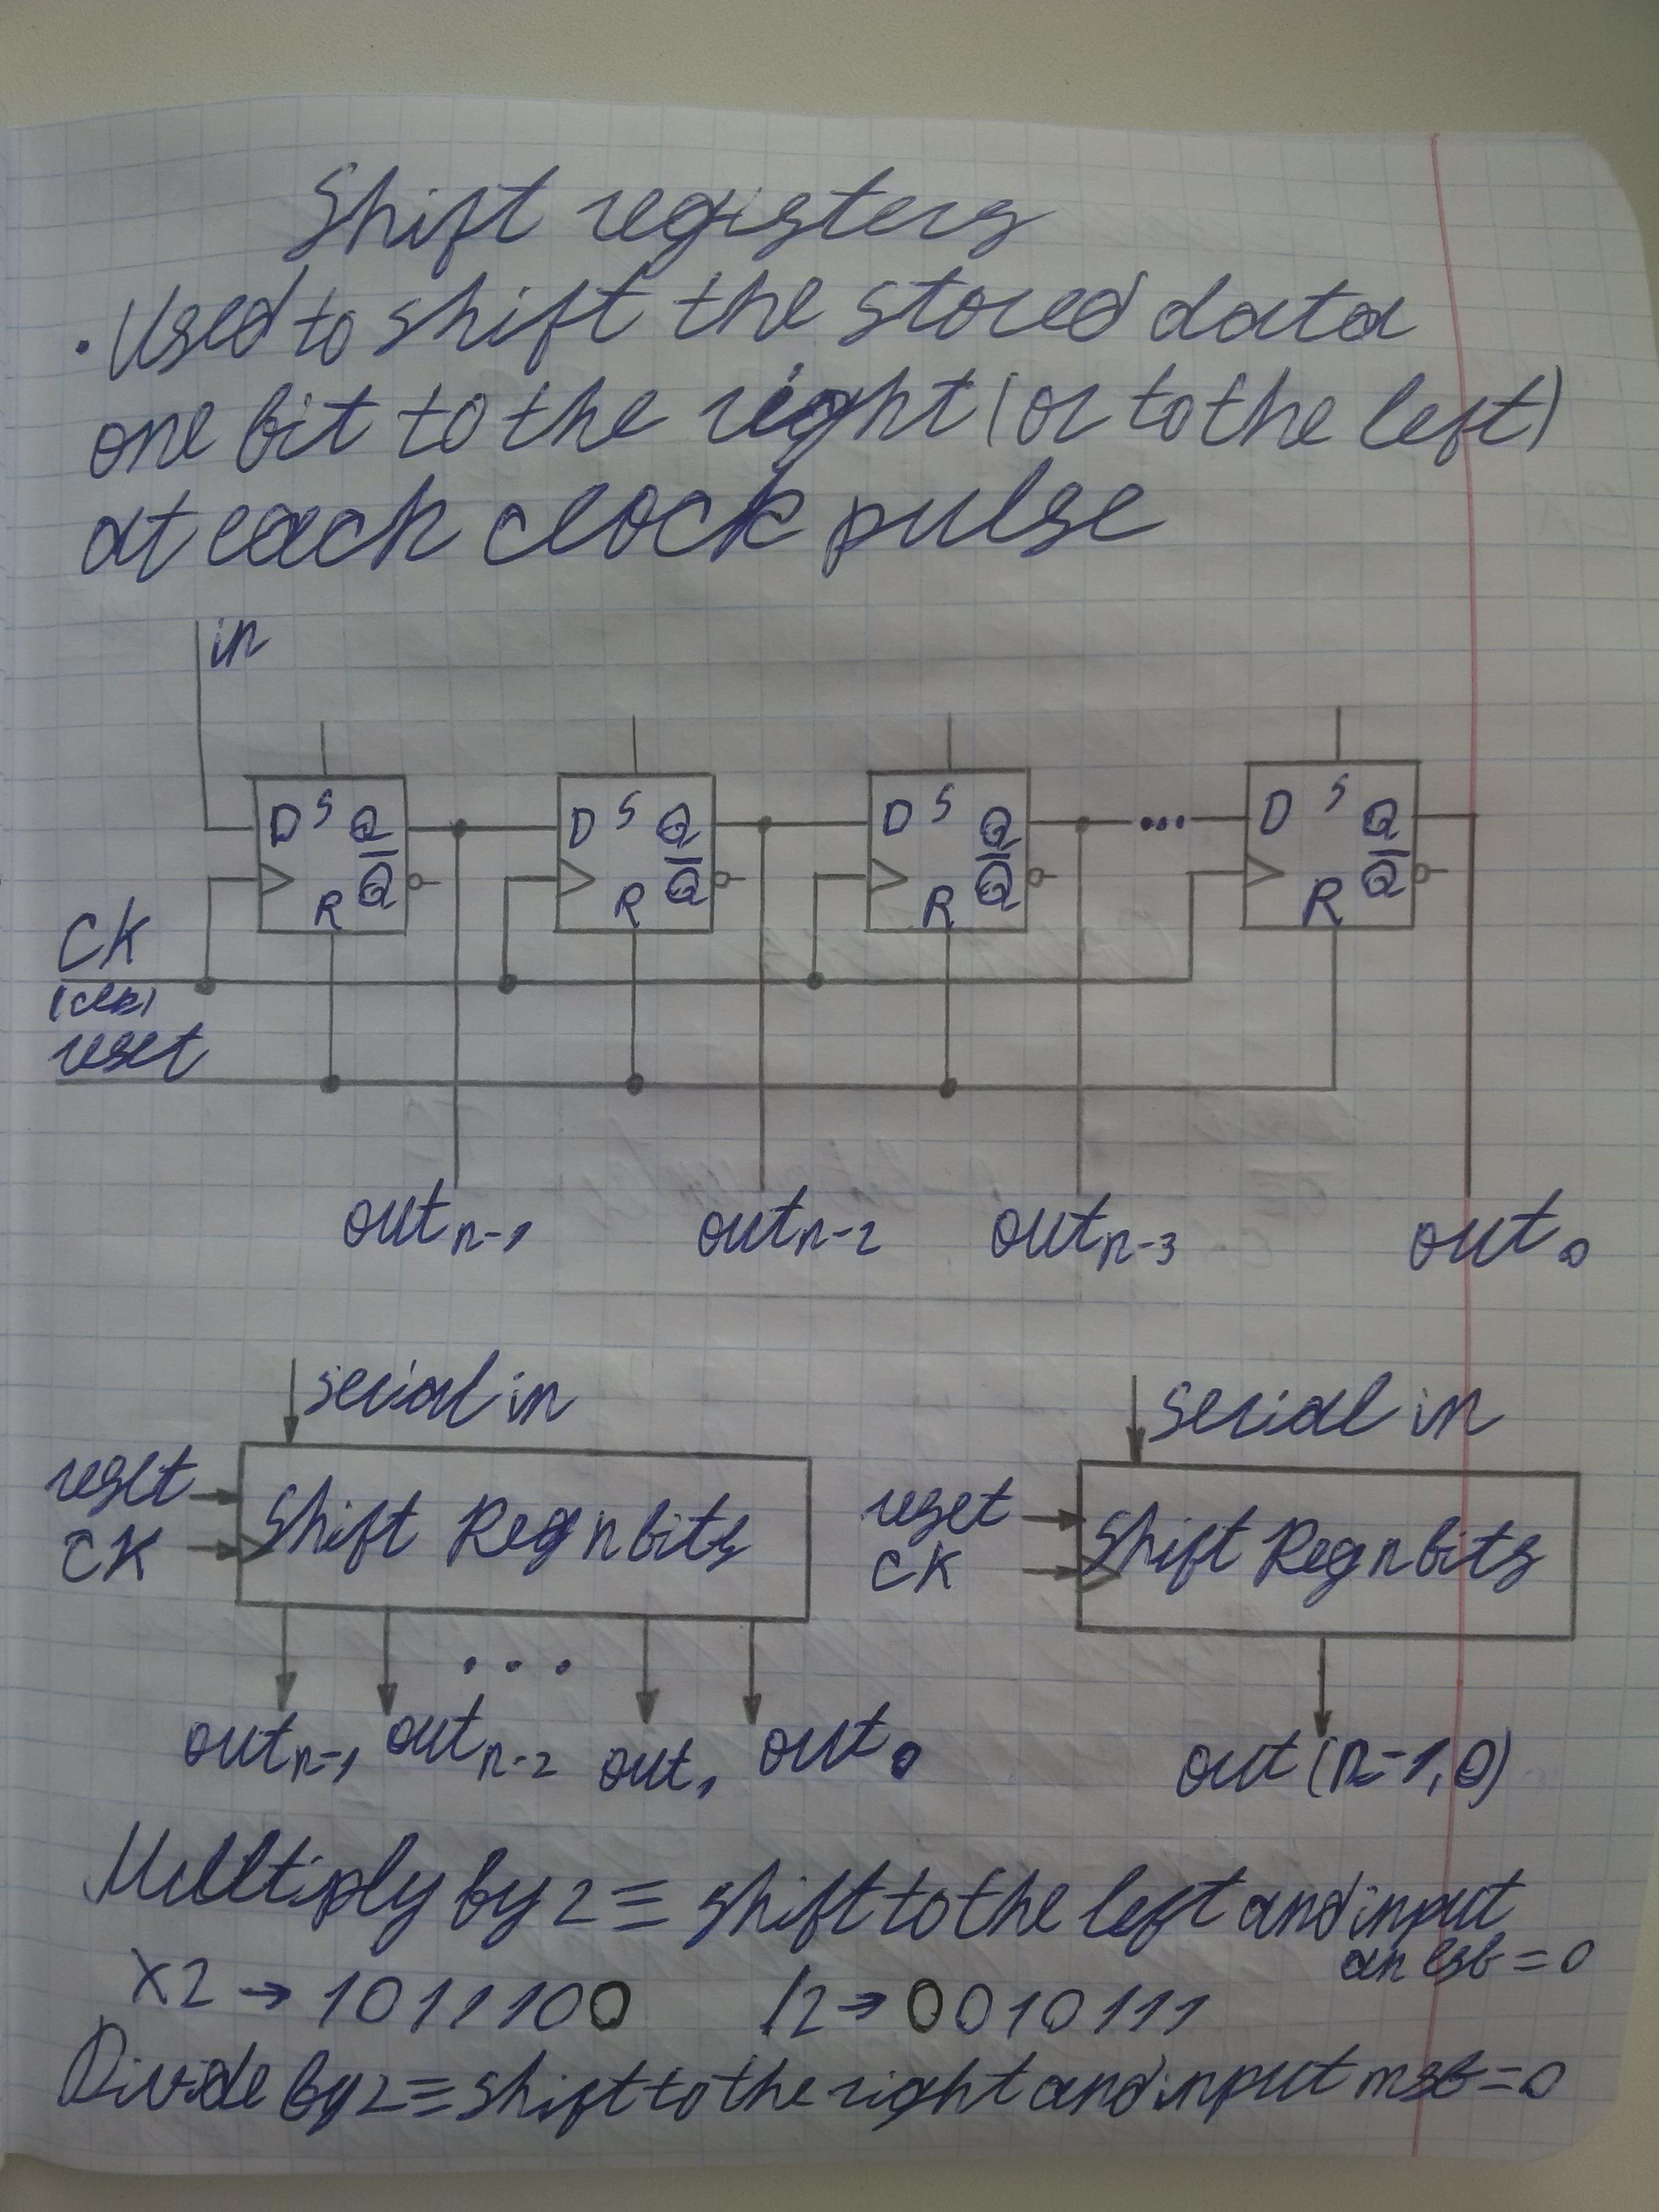 Shift registers
• Used to shift the stored data
one bit to the right (or to the left)
at each clock pulse
in
D S Q D S Q D S Q ... D S Q
R Q̅ R Q̅ R Q̅ R Q̅
CK
(clk)
reset
out n-1 out n-2 out n-3 out 0
serial in serial in
reset Shift Reg n bits reset Shift Reg n bits
CK CK
...
out n-1 out n-2 out 1 out 0 out (n-1,0)
Multiply by 2 ≡ shift to the left and input
an lsb = 0
x2 → 1011100 /2 → 0010111
Divide by 2 ≡ shift to the right and input msb = 0